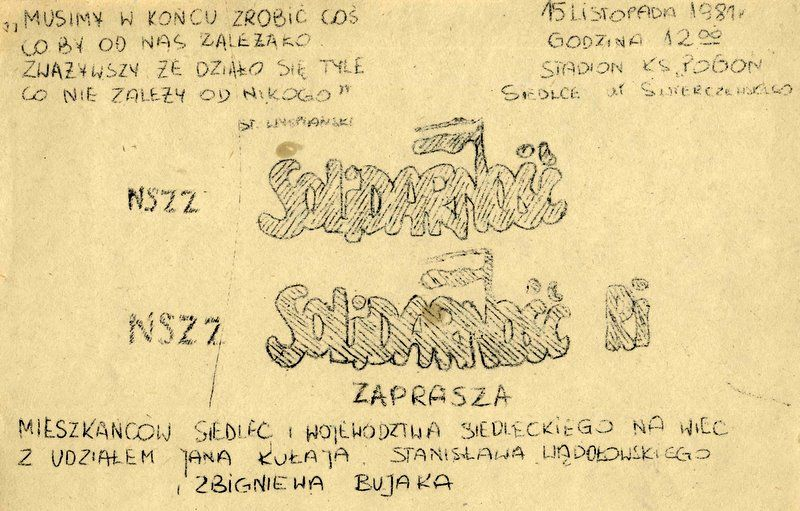 „MUSIMY W KOŃCU ZROBIĆ COŚ
CO BY OD NAS ZALEŻAŁO
ZWAŻYWSZY ŻE DZIAŁO SIĘ TYLE
CO NIE ZALEŻY OD NIKOGO”
ST. WYSPIAŃSKI
15 LISTOPADA 1981r
GODZINA 12 00
STADION KS „POGOŃ
SIEDLCE ul ŚWIERCZEWSKIEGO
NSZZ SOLIDARNOŚĆ
NSZZ SOLIDARNOŚĆ RI
ZAPRASZA
MIESZKAŃCÓW SIEDLEC I WOJEWÓDZTWA SIEDLECKIEGO NA WIEC
Z UDZIAŁEM JANA KUŁAJA STANISŁAWA WĄDOŁOWSKIEGO
I ZBIGNIEWA BUJAKA